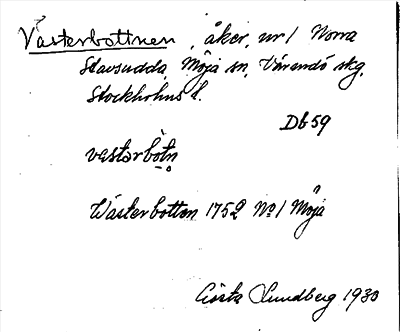 Västerbottnen, åker, nr 1 Norra
Stavsudda, Möja sn, Värmdö skg,
Stockholms l.
Db 59
västərbòtn
Wästerbotten 1752 No 1 Möja
Gösta Lundberg 1930